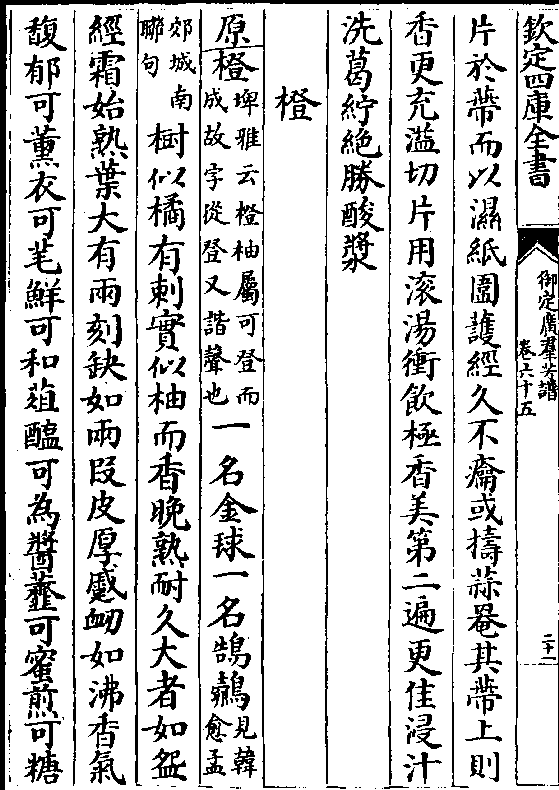 欽定四庫全書
御定廣羣芳譜
卷六十五
二十一
片於蔕而以濕紙圍護經久不瘺或擣蒜罨其蔕上則
香更充溢切片用滚湯衝飲極香美第二遍更佳浸汁
洗葛紵絶勝酸漿
橙
原橙埤雅云橙柚屬可登而成故字從登又諧聲也一名金球一名鵠鷍見韓愈孟
郊城南聯句樹似橘有刺實似柚而香晚熟耐久大者如盌
經霜始熟葉大有兩刻缺如兩段皮厚蹙衂如沸香氣
馥郁可薰衣可芼鮮可和葅醢可為醬虀可蜜煎可糖